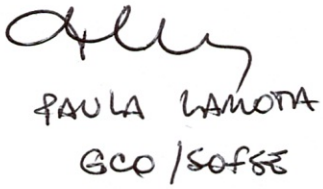 PAULA LAMOTA
GCO/SOFSE